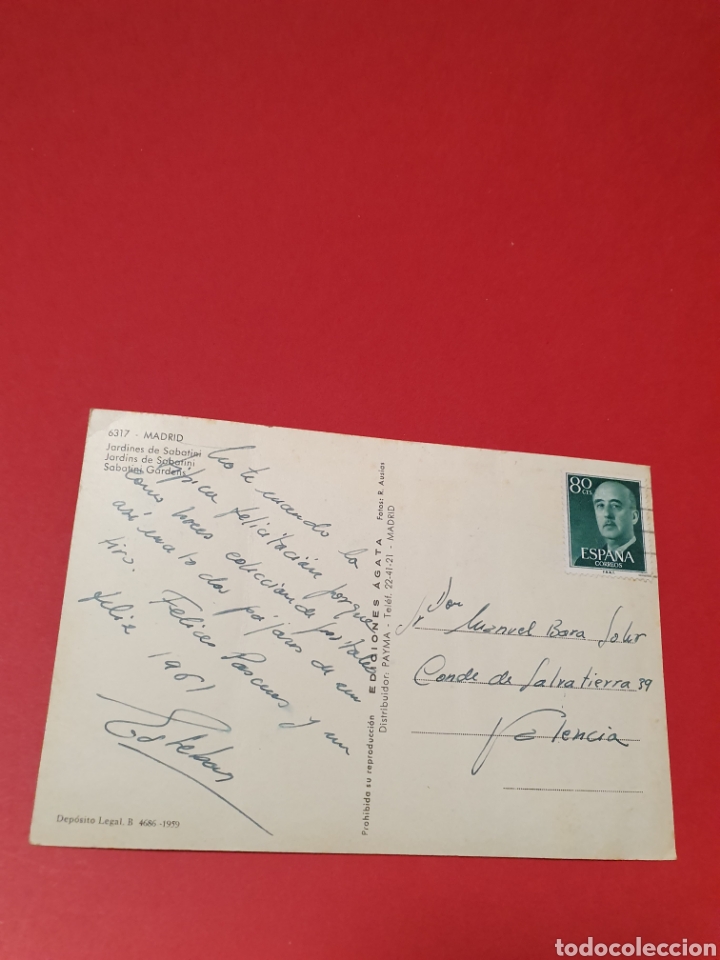 6317 - MADRID
Jardines de Sabatini
Jardins de Sabatini
Sabatini Gardens
No te mando la
típica felicitación porque
como haces colección de postales
así mato dos pájaros de un
tiro. Felices Pascuas y un
feliz 1961
Esteban
Depósito Legal. B 4686 - 1959
Prohibida su reproducción
EDICIONES AGATA Fotos: R. Ausias
Distribuidor: PAYMA - Teléf. 22-41-21 - MADRID
80 CTS
ESPAÑA
CORREOS
Sr Don
Manuel Bara
Conde de Salvatierra 39
Valencia
todocoleccion